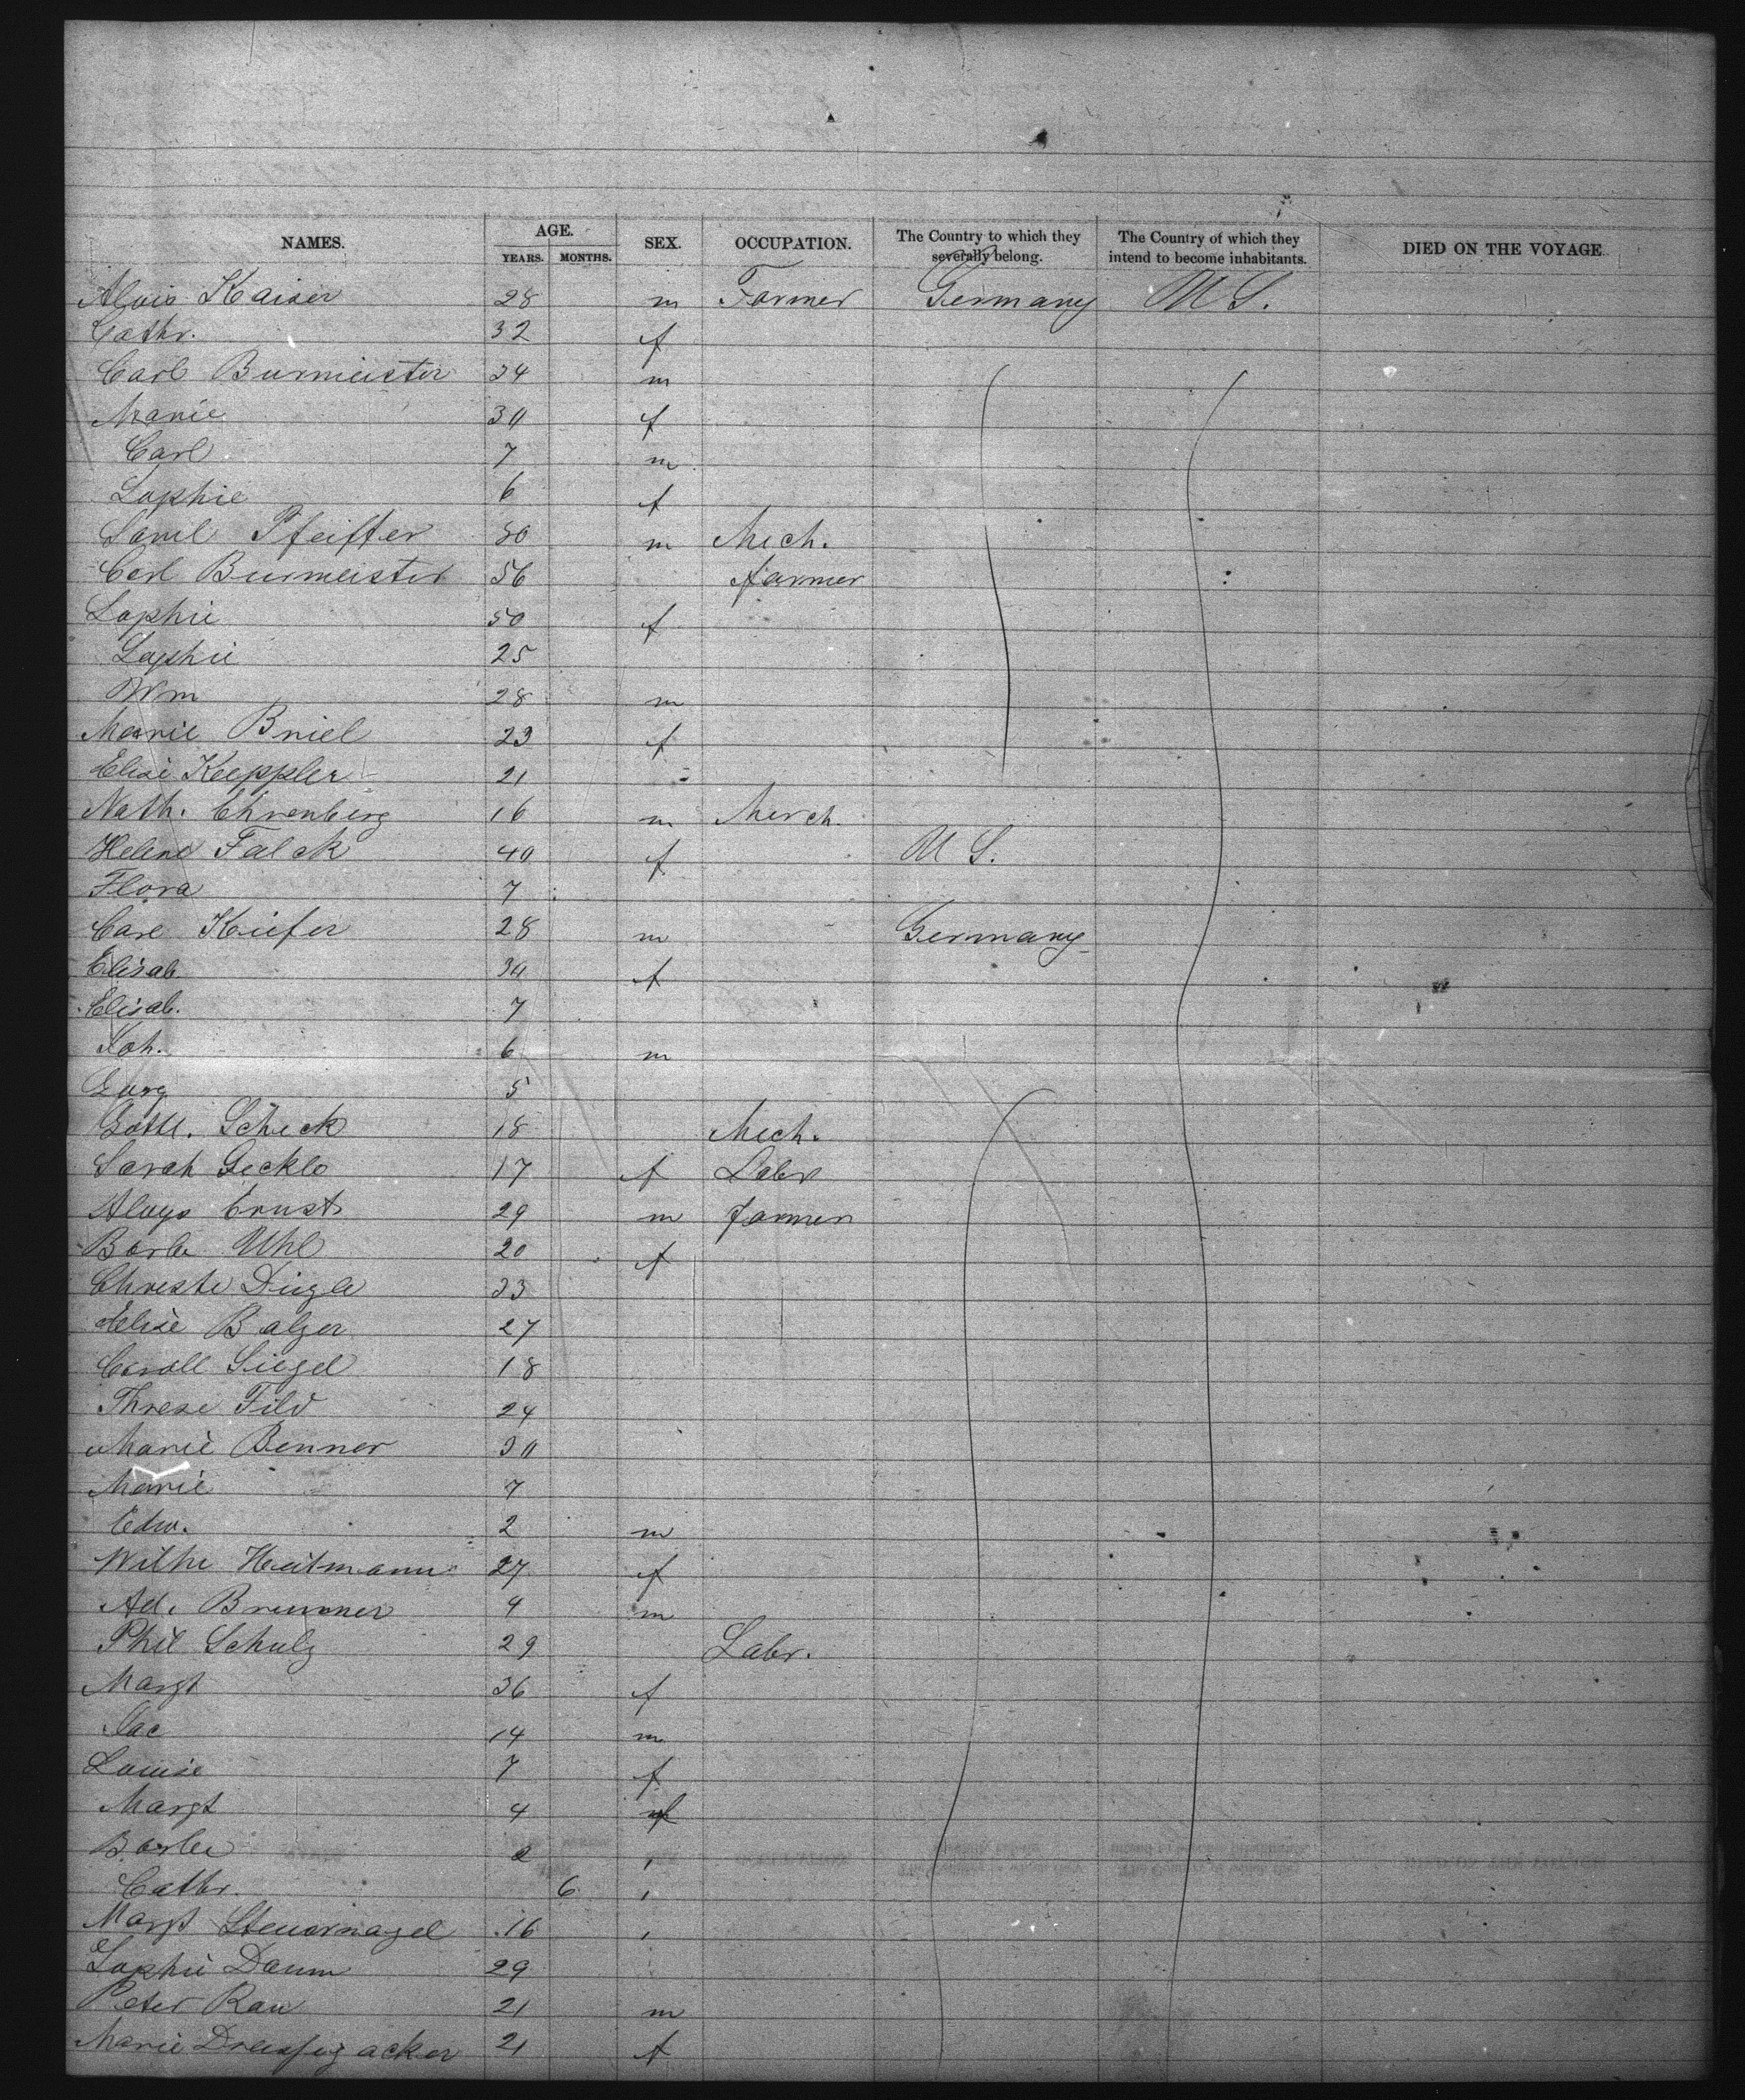 NAMES. AGE. YEARS. MONTHS. SEX. OCCUPATION. The Country to which they severally belong. The Country of which they intend to become inhabitants. DIED ON THE VOYAGE
Alois Kaiser 28 m Farmer Germany U S.
Cathr. 32 f
Carl Burmeister 34 m
Marie 30 f
Carl 7 m
Sophie 6 f
Saml Pfeiffer 30 m Mech.
Carl Burmeister 56 farmer
Sophie 50 f
Sophie 25
Wm 28 m
Marie Briel 23 f
Elise Keppler 21
Nath. Ehrenberg 16 m Merch.
Helene Falck 40 f U S.
Flora 7
Carl Kiefer 28 m Germany
Elisab. 30 f
Elisab. 7
Joh. 6 m
Georg 5
Gottl. Scheck 18 Mech.
Sarah Gecklo 17 f Labr
Aloys Ernst 29 m farmer
Barb. Uhl 20 f
Christe Diegle 23
Elise Balzer 27
Caroll Siegel 18
Threse Fild 24
Marie Benner 30
Marie 7
Edw. 2 m
Wilhe Heitmann 27 f
Ad. Brunner 4 m
Phil Schulz 29 Labr.
Margt 36 f
Jac 14 m
Louise 7 f
Margt 4 f
Barbe 2 "
Cathr. 6 "
Margt Steuernagel 16 "
Sophie Daum 29
Peter Rau 21 m
Marie Dreissigacker 21 f